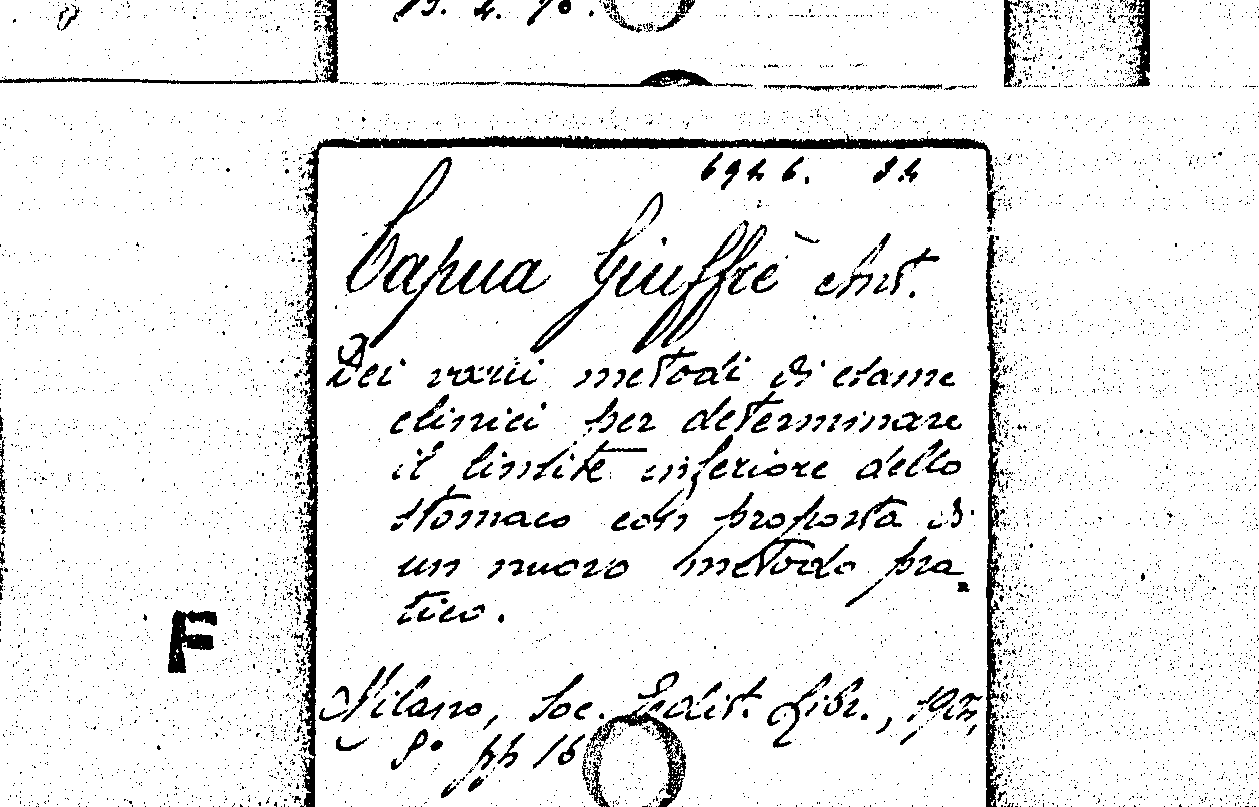 6926. 32
Capua Giuffrè Ant.
Dei varii metodi di esame
clinici per determinare
il limite inferiore dello
stomaco con proposta di
un nuovo metodo pra-
tico.
F
Milano, Soc. Edit. Libr.,
8° pp 16